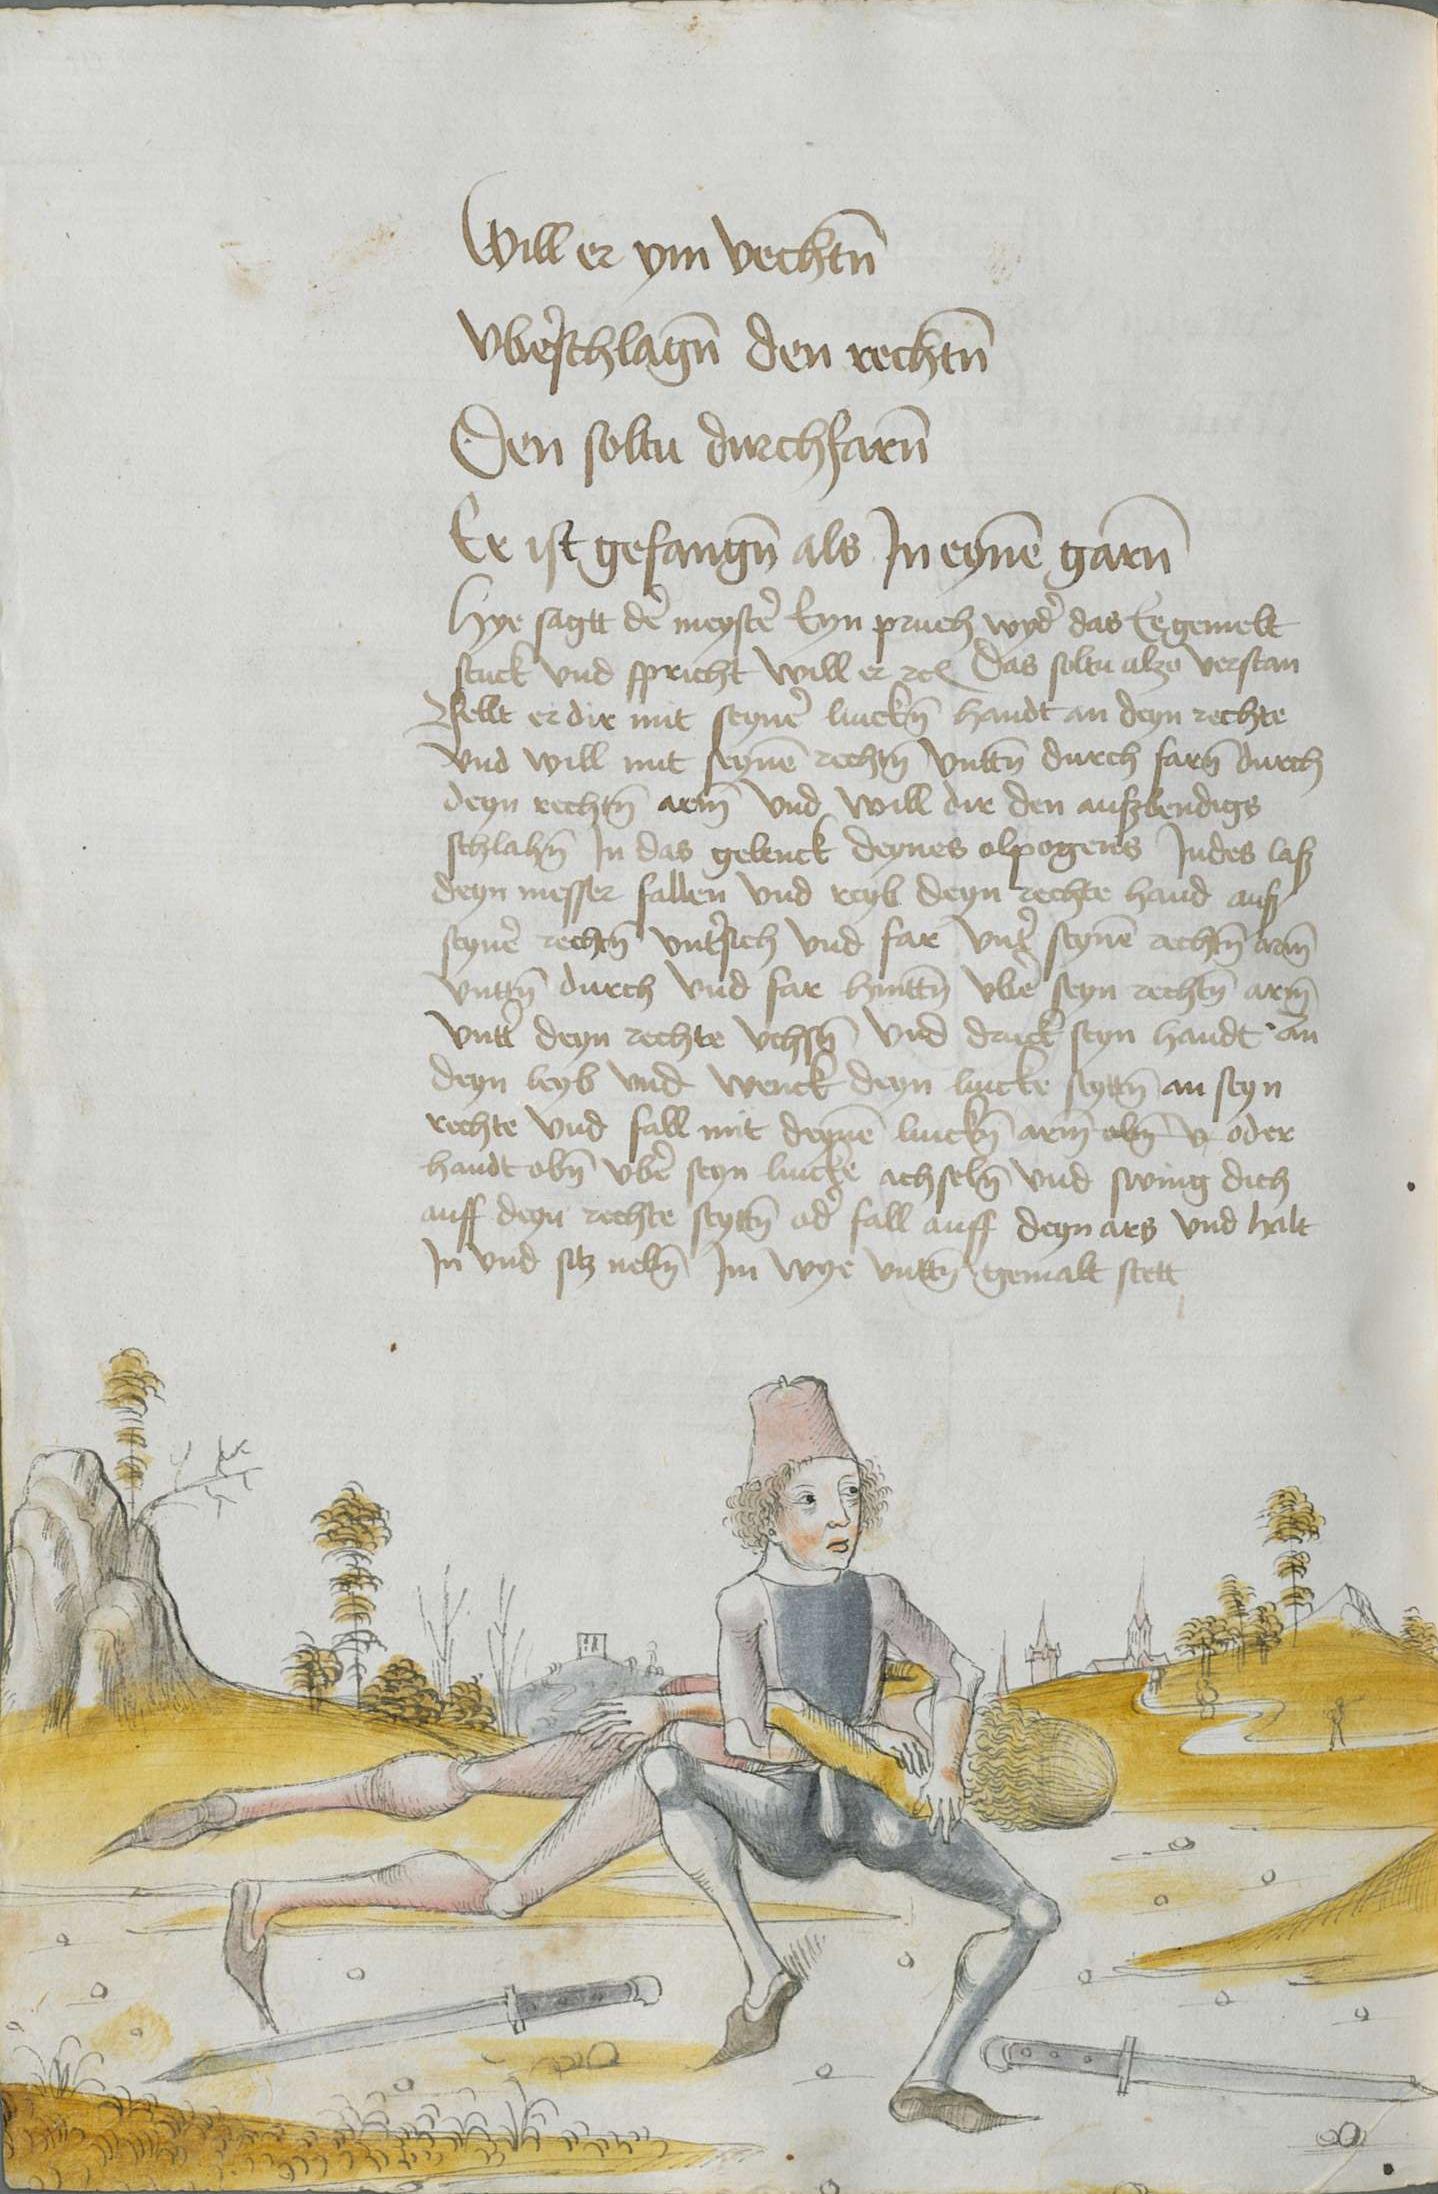 Will er ym vechtn̄
vbe͛schlagn̄ den rechtn̄
Den soltu durchfarn̄
Er ist gefangn̄ als In eynē garn̄
Hye sagtt de͛ meyste͛ Eyn pruch wyd͛ das Ee gemelt
stuck vnd spricht Will er zc Das soltu alzo verstan
Velt er dir mit seyne͛ linckn̄ handt an deyn rechte
vnd will mit seynē rechtn̄ vnttn̄ durch farn̄ durch
deyn rechtn̄ arm̄ vnd will dir den auszbendigs
schlahn̄ In das gelenck deynes olpogens Indes lasz
deyn messer fallen vnd reyb deyn rechte hand ausz
seyne͛ rechtn̄ vnt͛sich vnd far vnt͛ seynē rechtn̄ arm̄
vnttn̄ durch vnd far hinttn̄ vbe͛ seyn rechtn̄ arm̄
vntt͛ deyn rechte vchsn̄ vnd druck seyn handt an
deyn leyb vnd wenck deyn lincke seyttn̄ an seyn
rechte vnd fall mit deynē linckn̄ arm̄ obn̄ v oder
handt obn̄ vbe͛ seyn lincke achseln̄ vnd swing dich
auff deyn rechte seyttn̄ od͛ fall auff deyn ars vnd halt
In vnd sitz nebn̄ Im wye vnttn̄ gemalt stett